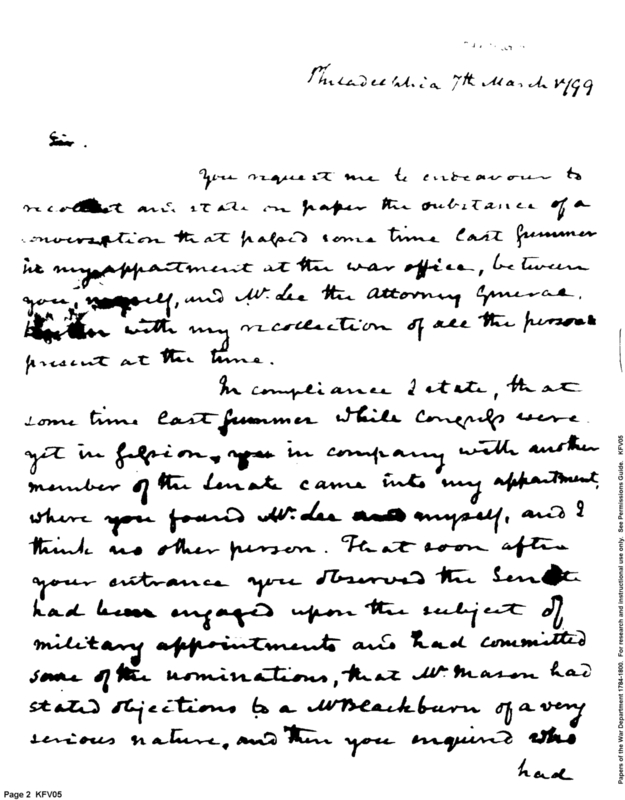 Philadelphia 7th March 1799
Sir.
You request me to endeavour to
recollect and state on paper the substance of a
conversation that passed some time last Summer
in my appartment at the war office, between
you, myself, and Mr. Lee the Attorney General.
together with my recollection of all the persons
present at the time.
In compliance I state, that
some time last Summer while Congress were
yet in Session, you in company with another
member of the Senate came into my appartment,
where you found Mr. Lee and myself, and I
think no other person. That soon after
your entrance you observed the Senate
had been engaged upon the subject of
military appointments and had committed
some of the nominations, that Mr. Mason had
stated objections to a Mr Blackburn of a very
serious nature, and then you enquired who
had
Page 2 KFV05
Papers of the War Department 1784-1800. For research and instructional use only. See Permissions Guide. KFV05